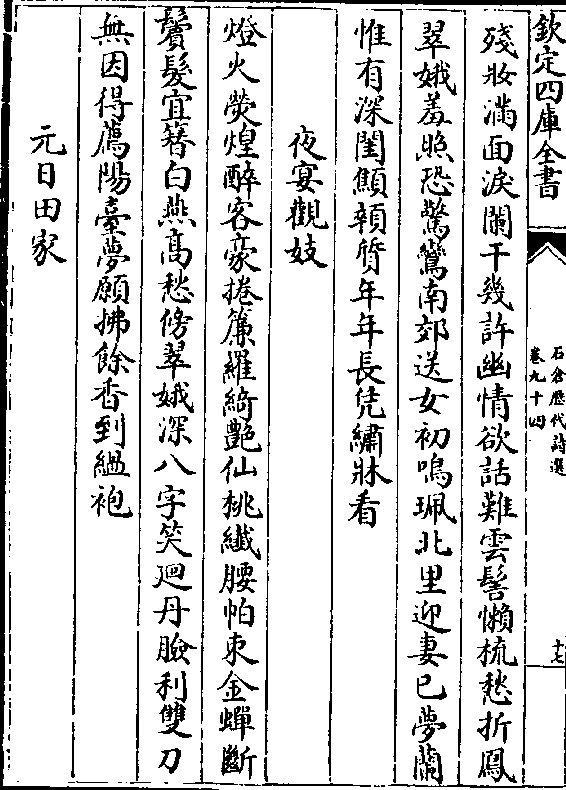 欽定四庫全書
石倉歷代詩選
卷九十四
十七
殘妝滿面淚闌干幾許幽情欲話難雲髻懶梳愁折鳳
翠娥羞照恐驚鸞南郊送女初鳴珮北里迎妻已夢蘭
惟有深閨顦顇質年年長凭繡牀看
夜宴觀妓
燈火熒煌醉客豪捲簾羅綺艷仙桃纖腰怕束金蟬斷
鬢髮宜簪白燕高愁傍翠娥深八字笑廻丹臉利雙刀
無因得薦陽臺夢願拂餘香到縕袍
元日田家